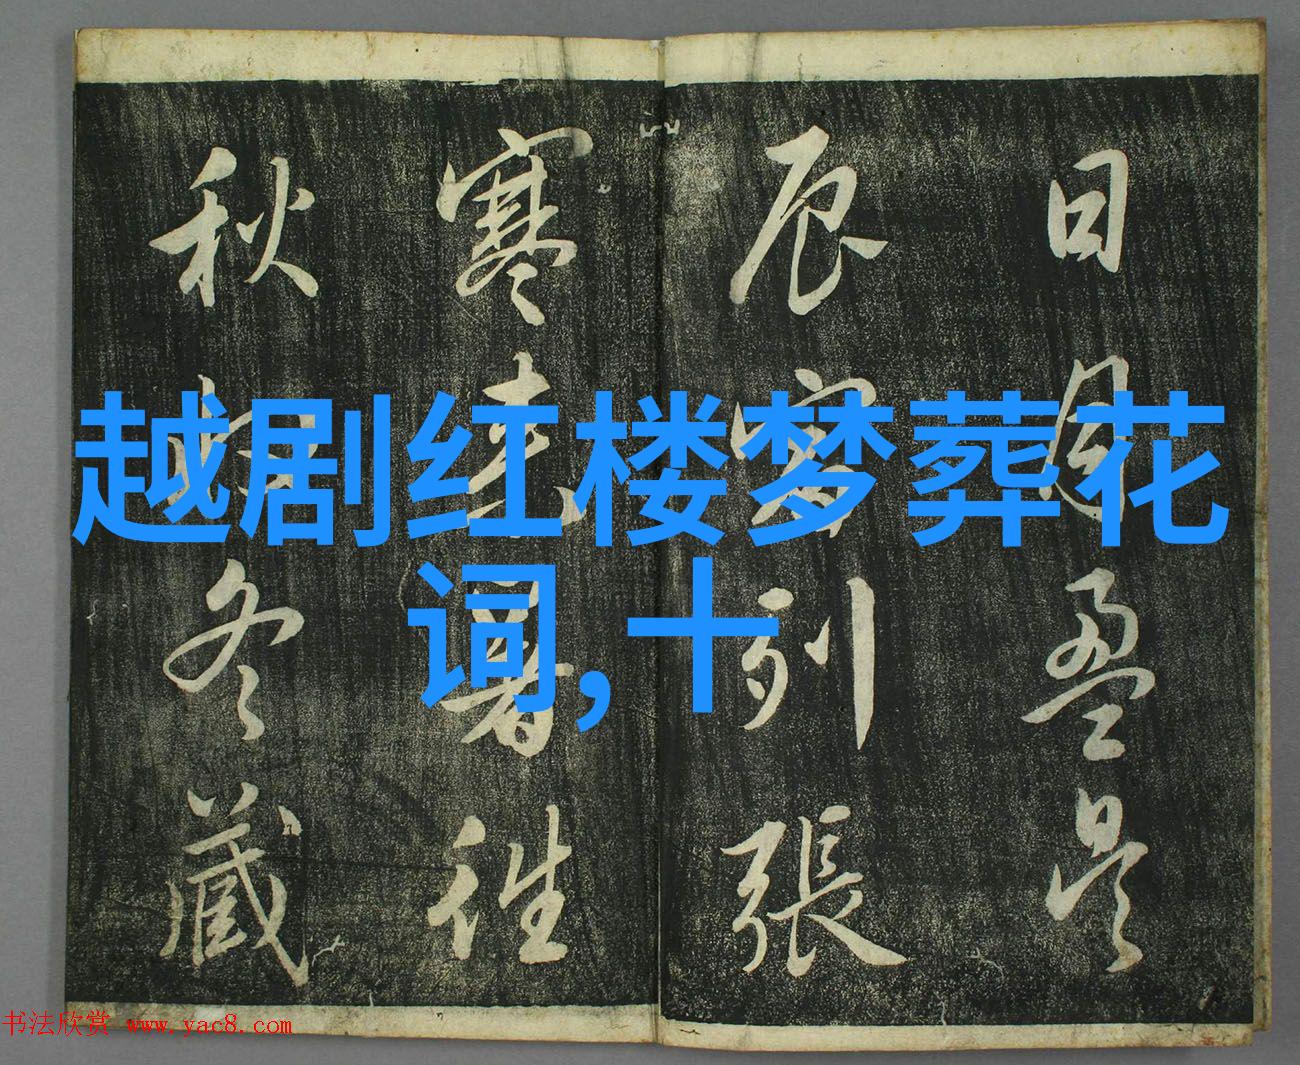 日月盈昃
辰宿列張
寒来暑往
秋收冬藏
越剧红楼梦葬花
词,十
书法欣赏 www.yac8.com